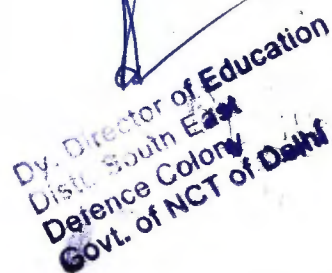 Dy. Director of Education
Distt. South East
Defence Colony
Govt. of NCT of Delhi